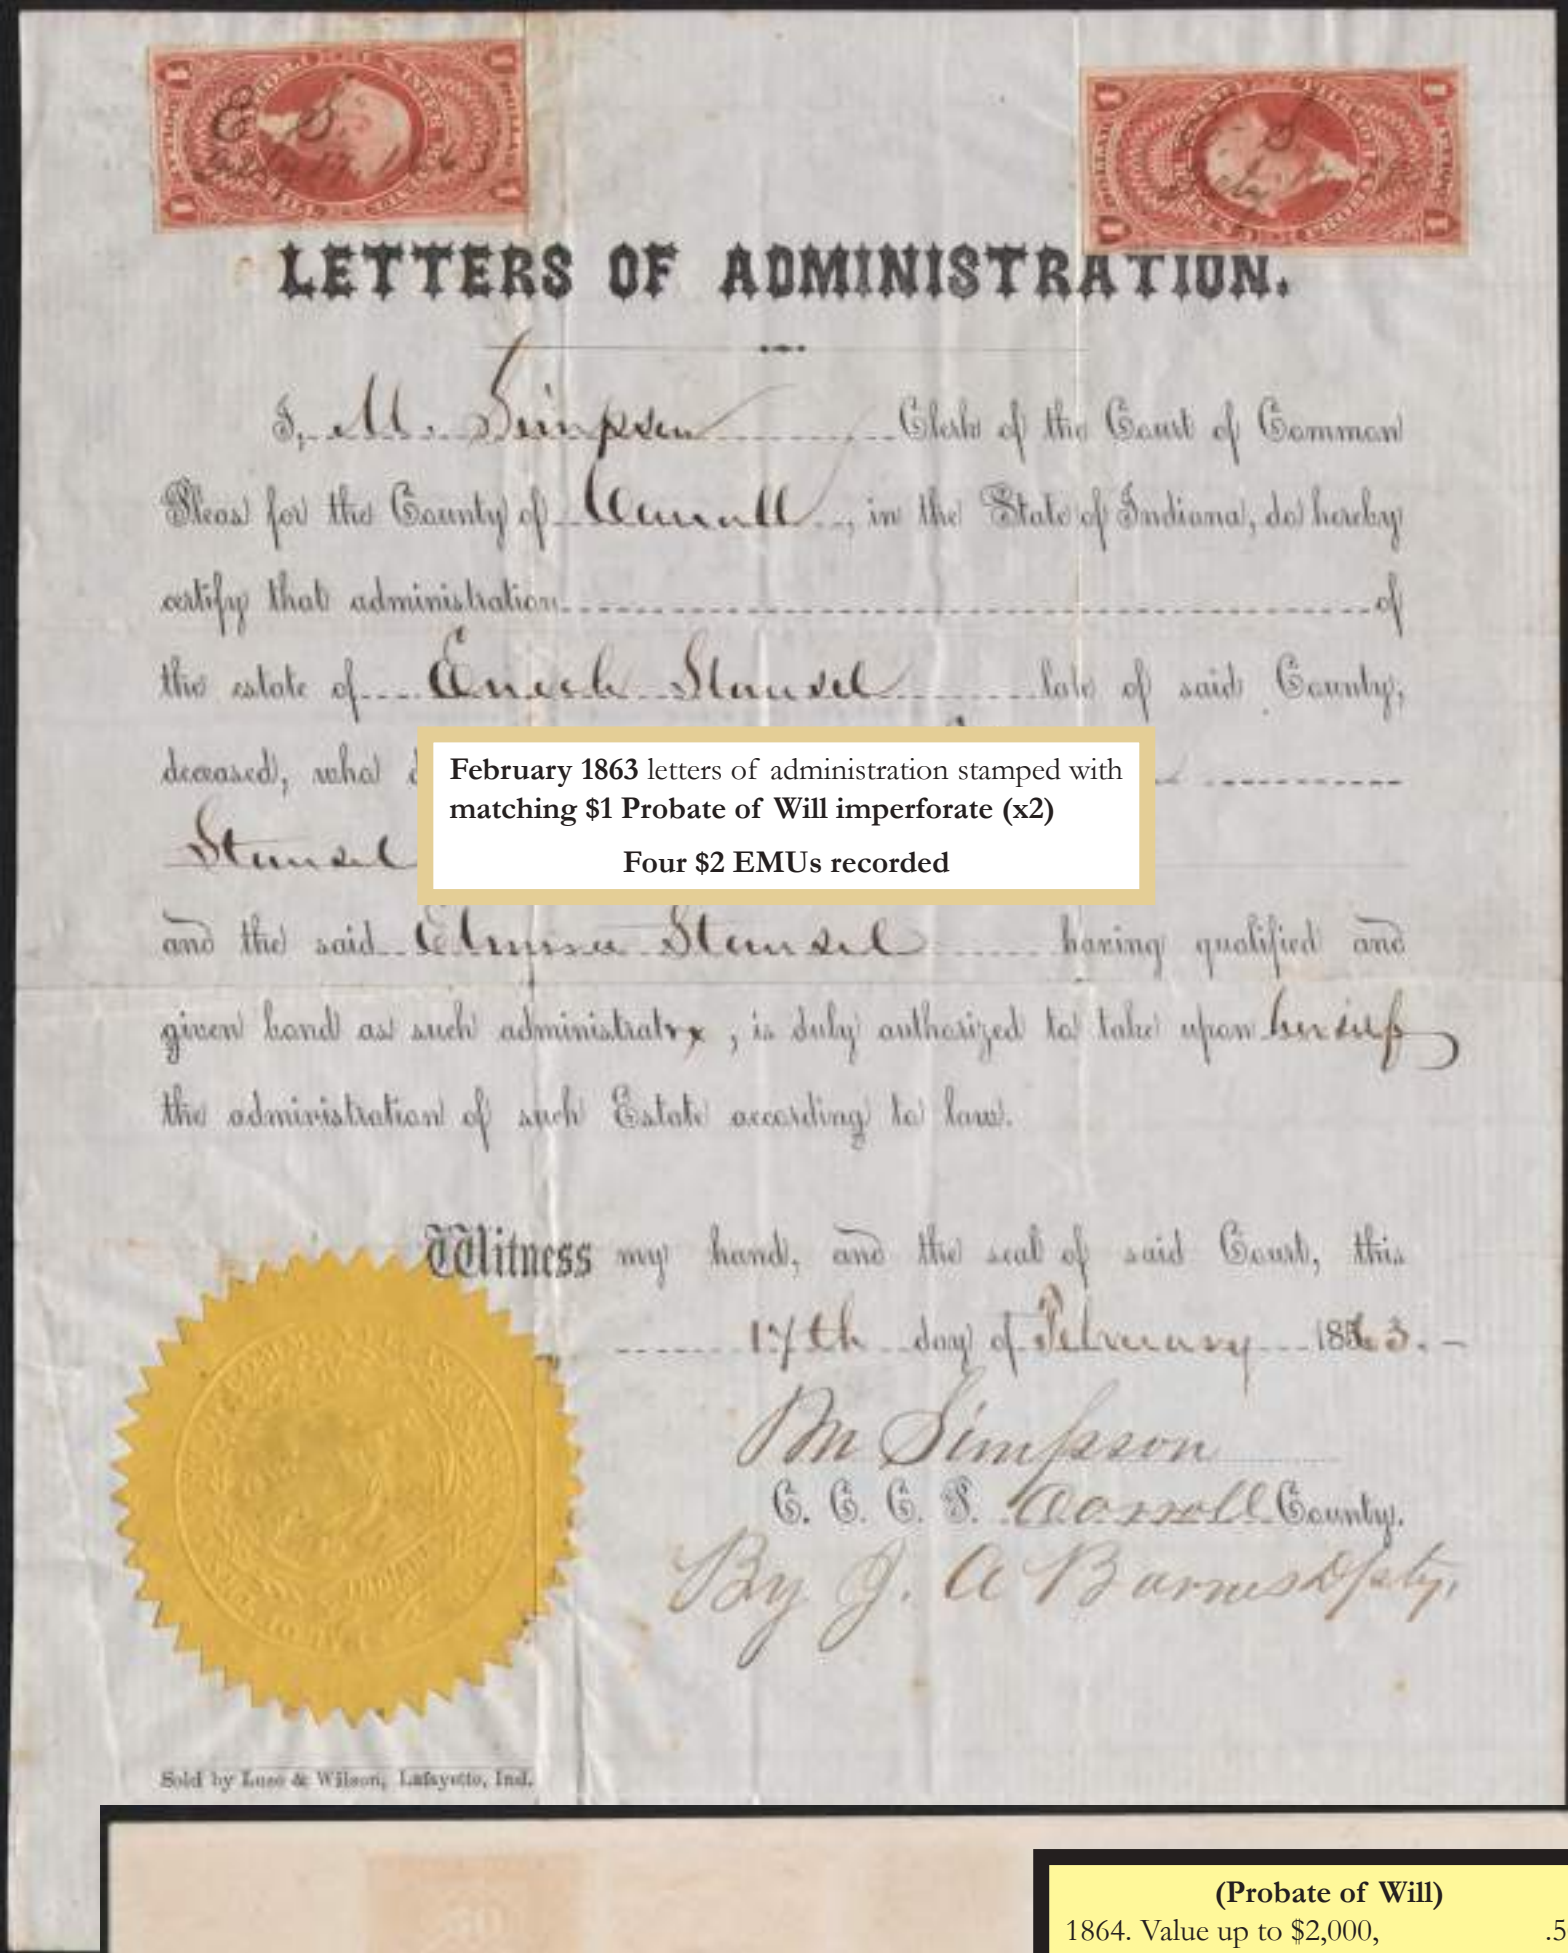 E. S.
LETTERS OF ADMINISTRATION.
I, M. Simpson Clerk of the Court of Common
Pleas for the County of Carroll, in the State of Indiana, do hereby
certify that administration of
the estate of Enoch Stansel late of said County,
deceased, who
Stansel
February 1863 letters of administration stamped with
matching $1 Probate of Will imperforate (x2)
Four $2 EMUs recorded
and the said Stansel having qualified and
given bond as such administratrx, is duly authorized to take upon herself
the administration of such Estate according to law.
Witness my hand, and the seal of said Court, this
17th day of February 1863.
M Simpson
C. C. C. P. Carroll County.
By J. A Barnes Dpty.
Sold by Luse & Wilson, Lafayette, Ind.
(Probate of Will)
1864. Value up to $2,000, .5